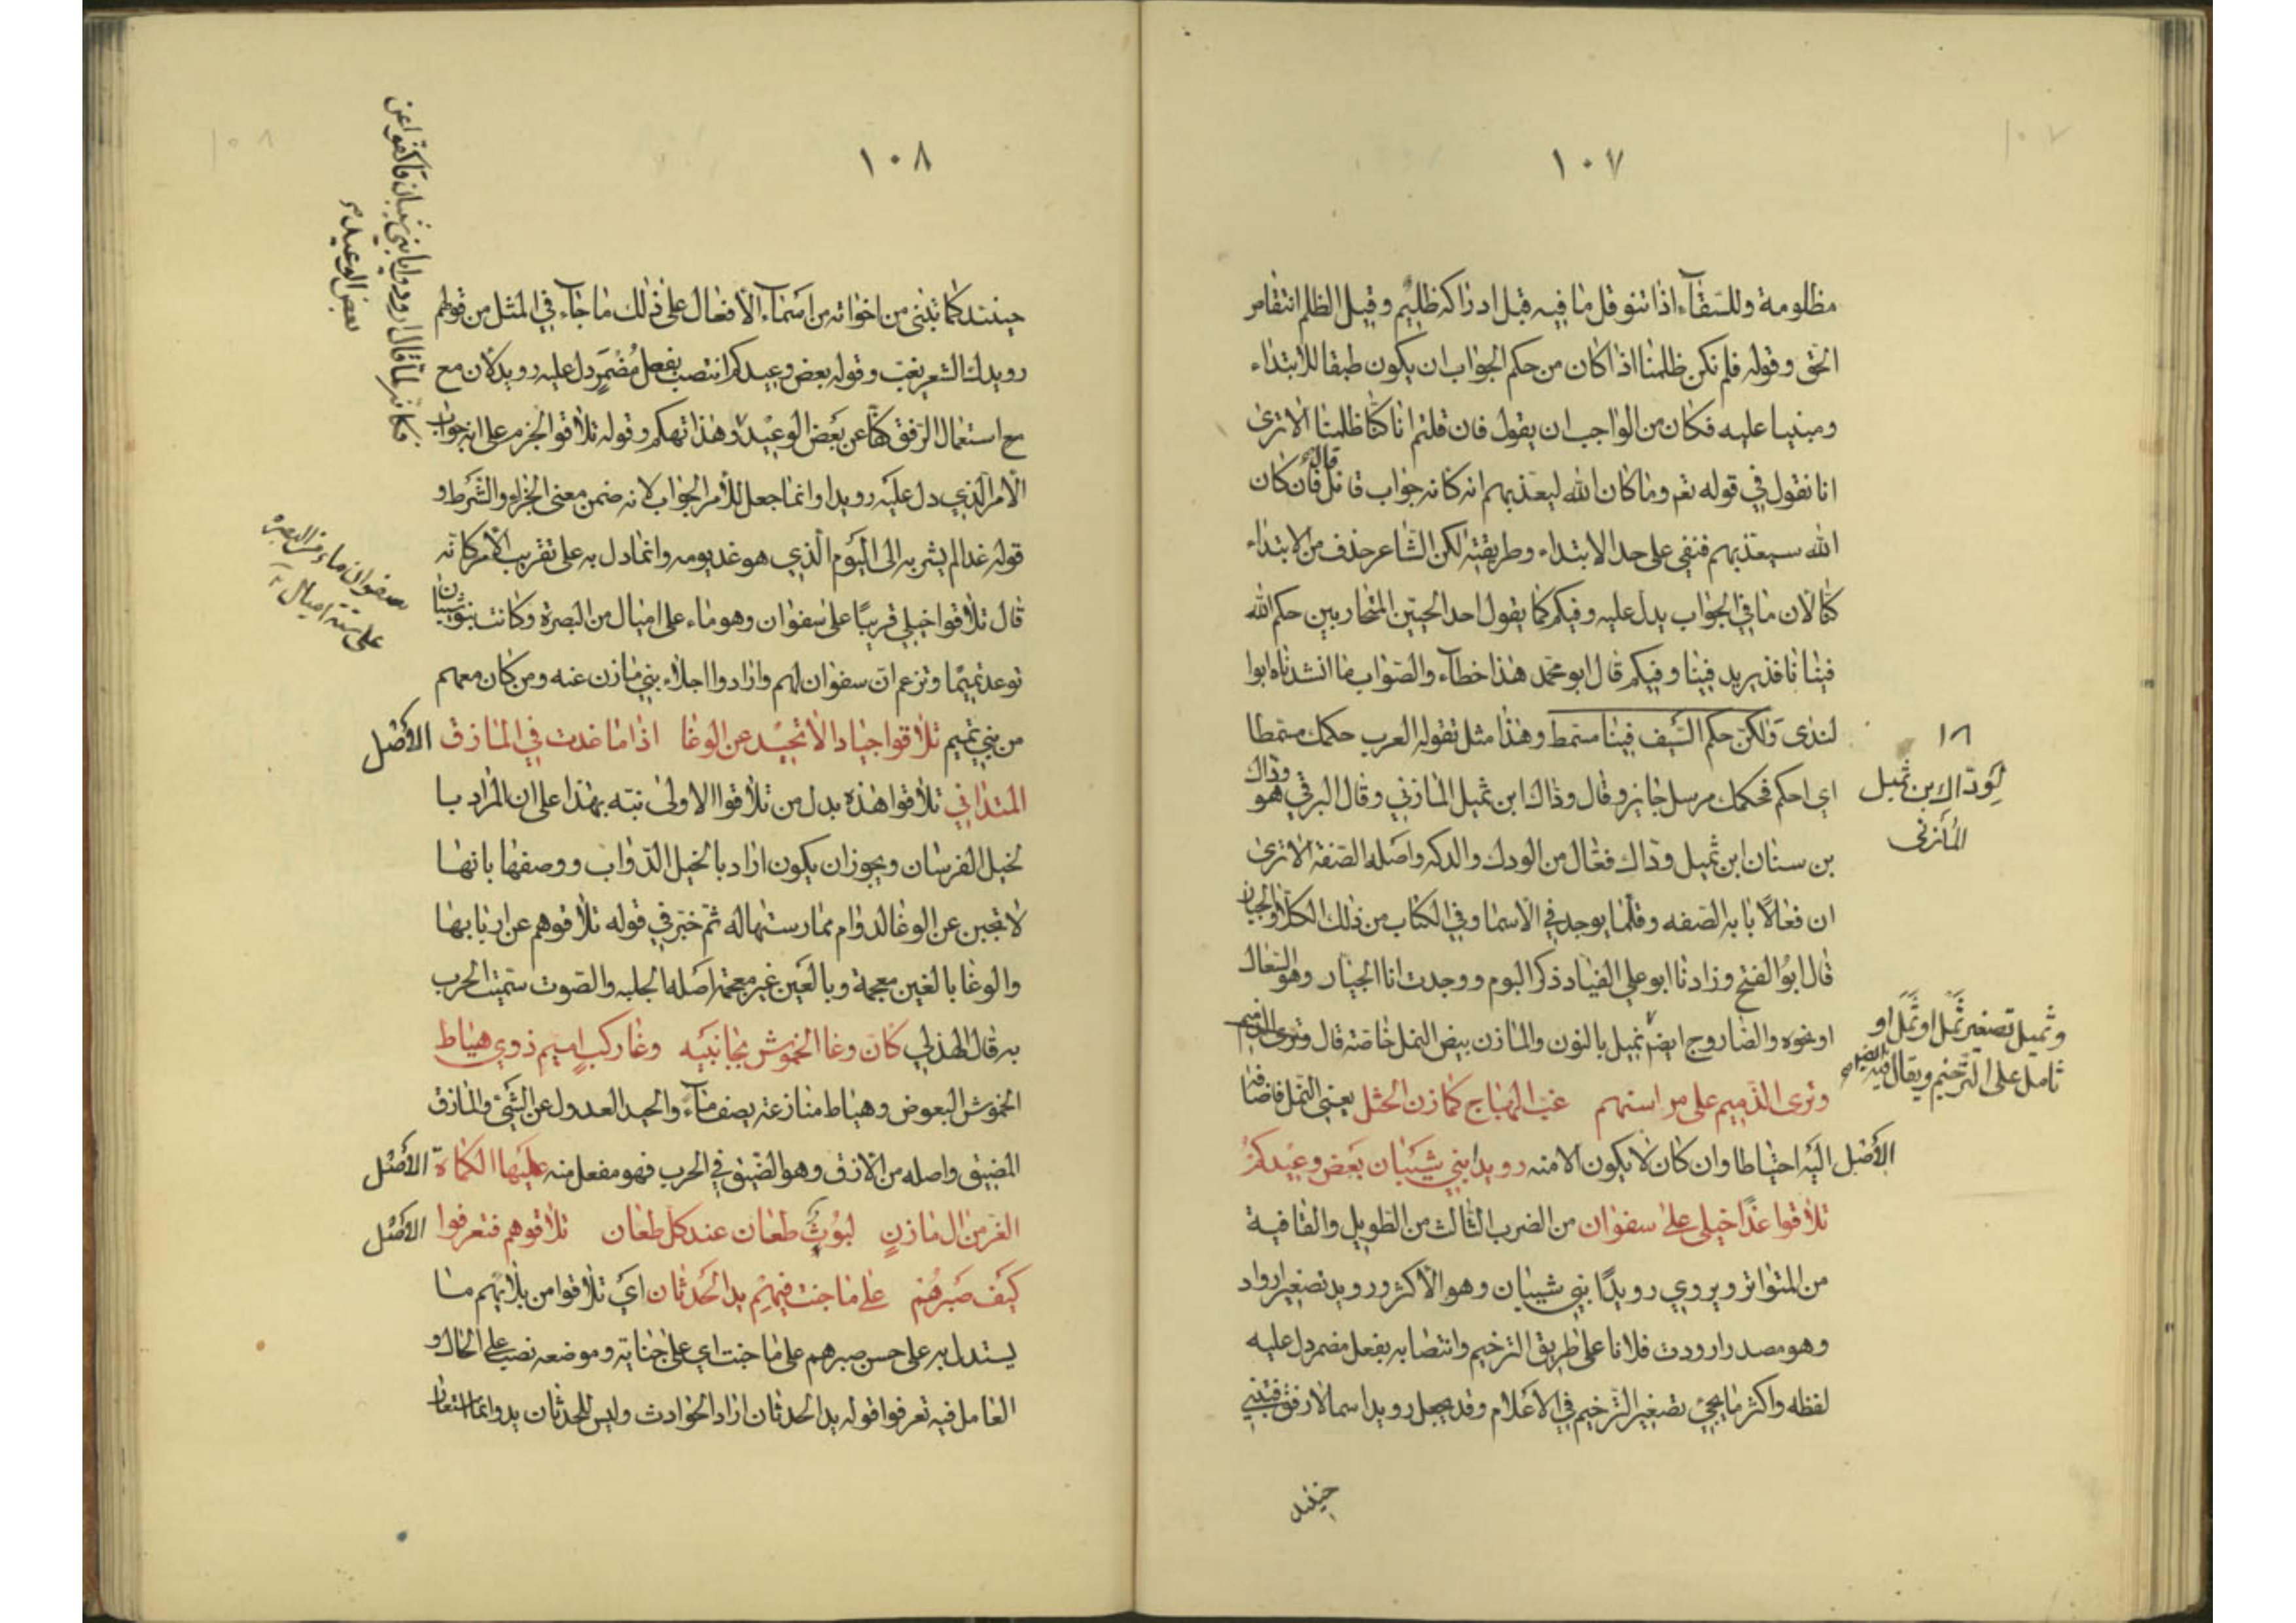 ١٠٧
مظلومة وللسّقآء اذا تنوول ما فيه قبل ادراكه ظليم وقيل الظلم انتقاص
الحق وقوله فلم نكن ظلمنا اذا كان من حكم الجواب ان يكون طبقا للابتداء
ومبنيا عليه فكان من الواجب ان يقول فان قلتم انا كنا ظلمنا الا ترى
انا نقول في قوله تعم وما كان الله ليعذبهم انه كانه جواب قائل قال فان كان
الله سيعذبهم فنفى على حد الابتداء وطريقته لكن الشاعر حذف من الابتداء
كنا لان ما في الجواب يدل عليه وفيكم كما يقول احد الحيين المتحاربين حكم الله
فينا نافذ يريد فينا وفيكم قال ابو محمد هذا خطآء والصواب ما انشدناه ابوا
لندى ولكن حكم السّيف فينا مسمط وهذا مثل تقوله العرب حكمك مسمطا
اى احكم فحكمك مرسل جايز وقال وذاك ابن ثميل المازني وقال البرقي هو وداك
بن سنان ابن ثميل ودّاك فعّال من الودك والدكه واصله الصّفة الا ترى
ان فعّالًا بابه الصّفه وقلّما يوجد في الاسما وفي الكتاب من ذلك الكلّاء والجبان
قال ابوُ الفتح وزادنا ابو علي الفياد ذكر البوم ووجدت انا الجيار وهو السّعال
او نحوه والصاروج ايضم نميل بالنون والمازن بيض النمل خاصّة قال وترى الذميم
وترى الذّميم على مراسنهم غبّ الهياج كمازن الجثل يعني النّمل فاضافها
الأصْل اليه احتياطا وان كان لا يكون الا منه رويدا بني شَيبان بَعض وعيدكمُ
تلاقوا غدًا خيلي على سفوان من الضرب الثالث من الطّويل والقافية
من المتواتر ويروي رويدًا بني شيبان وهو الأكثر ورويد تصغير ارواد
وهو مصدر ارودت فلانا على طريق الترخيم وانتصابه بفعل مضمر دل عليه
لفظه واكثر ما يجئ تصغير التّرخيم في الاعلام وقد يجعل رويد اسما لارفق فتبنى
حينئد
١٨
لِوَدّاك بن ثميل
المازنى
وثميل تصغير ثَمَل او ثَمِل او
ثامل على الترخيم ويقال فيه ايضا
١٠٨
حينئد كما تبنى من اخواته من اسْمآء الأفعال على ذلك ما جاء في المثل من قولهم
رويدك الشعر يغب وقوله بعض وعيدكم انتصب بفعل مُضْمَرٍ دل عليه رويد لان مع
مع استعمال الرفق كفّا عن بَعض الوعيد وهذا تهكم وقوله تلاقوا الجزم على انه جواب
الأمر الّذي دل عليه رويدا وانما جعل للأمر الجواب لانه ضمن معنى الجزاء والشّرط و
قوله غدا لم يشر به الى اليوم الّذي هو غد يومه وانما دل به على تقريب الأمر كانه
قال تلاقوا خيلي قريبًا على سفوان وهو ماء على اميال من البَصرة وكانت بنو شيبان
توعد تميمًا وتزعم انّ سفوان لهم وارادوا اجلاء بني مازن عنه ومن كان معهم
من بني تميم تلاقوا جيادا لا تحيد عن الوغا اذا ما غدت في المازق الأصْل
المتداني تلاقوا هذه بدل من تلاقوا الاولى نبّه بهذا على ان المراد با
لخيل الفرسان ويجوز ان يكون اراد بالخيل الدّواب ووصفها بانها
لا تجبن عن الوغا لدوام ممارستها له ثم خبر في قوله تلاقوهم عن اربابها
والوغا بالغين معجمة وبالعَين غير معجمة اصله الجلبه والصّوت سمّيت الحرب
به قال الهذلي كان وغا الخموش بجانبَيه وغا ركب اميم ذوي هياط
الخموش البعوض وهياط منازعة يصف مآء والحيد العدول عن الشّئ والمازق
المضيق واصله من الازق وهو الضّيق في الحرب فهو مفعل منه عليها الكماة الأصْل
الغر من ال مازنٍ ليُوثُ طعان عند كل طعان تلاقوهم فتعرفوا الأصْل
كيف صَبرهُم على ما جنت فيهم يد الحدثان اي تلاقوا من بلائهم ما
يستدل به على حسن صبرهم على ما جنت اي على جناية وموضعه نصب على الحال و
العامل فيه تعرفوا قوله يد الحدثان اراد الحوادث وليس للحدثان يد وانما استعار
فكانه لما قال ارودوا يا بني شيبان قال كفوا عن
بعض الوعيد
سفوان ماء من البصرة
على ستة اميال